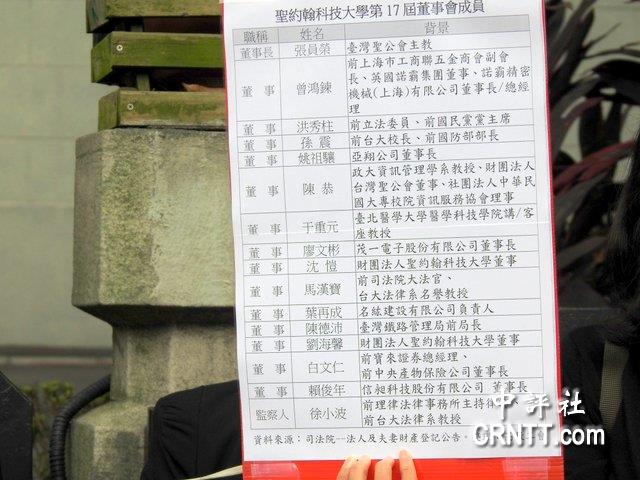 聖約翰科技大學第17屆董事會成員
職稱 姓名 背景
董事長 張員榮 臺灣聖公會主教
董事 曾鴻鍊 前上海市工商聯五金商會副會
長、英國諾霸集團董事、諾霸精密
機械(上海)有限公司董事長/總經
理
董事 洪秀柱 前立法委員、前國民黨黨主席
董事 孫震 前台大校長、前國防部部長
董事 姚祖驤 亞翔公司董事長
董事 陳恭 政大資訊管理學系教授、財團法人
台灣聖公會董事、社團法人中華民
國大專校院資訊服務協會理事
董事 于重元 臺北醫學大學醫學科技學院講/客
座教授
董事 廖文彬 茂一電子股份有限公司董事長
董事 沈愷 財團法人聖約翰科技大學董事
董事 馬漢寶 前司法院大法官、
台大法律系名譽教授
董事 葉再成 名絃建設有限公司負責人
董事 陳德沛 臺灣鐵路管理局前局長
董事 劉海馨 財團法人聖約翰科技大學董事
董事 白文仁 前寶來證券總經理、
前中央產物保險公司董事長
董事 賴俊年 信昶科技股份有限公司 董事長
監察人 徐小波 前理律法律事務所主持律
前台大法律系教授
資料來源：司法院--法人及夫妻財產登記公告
中評社
CRNTT.com